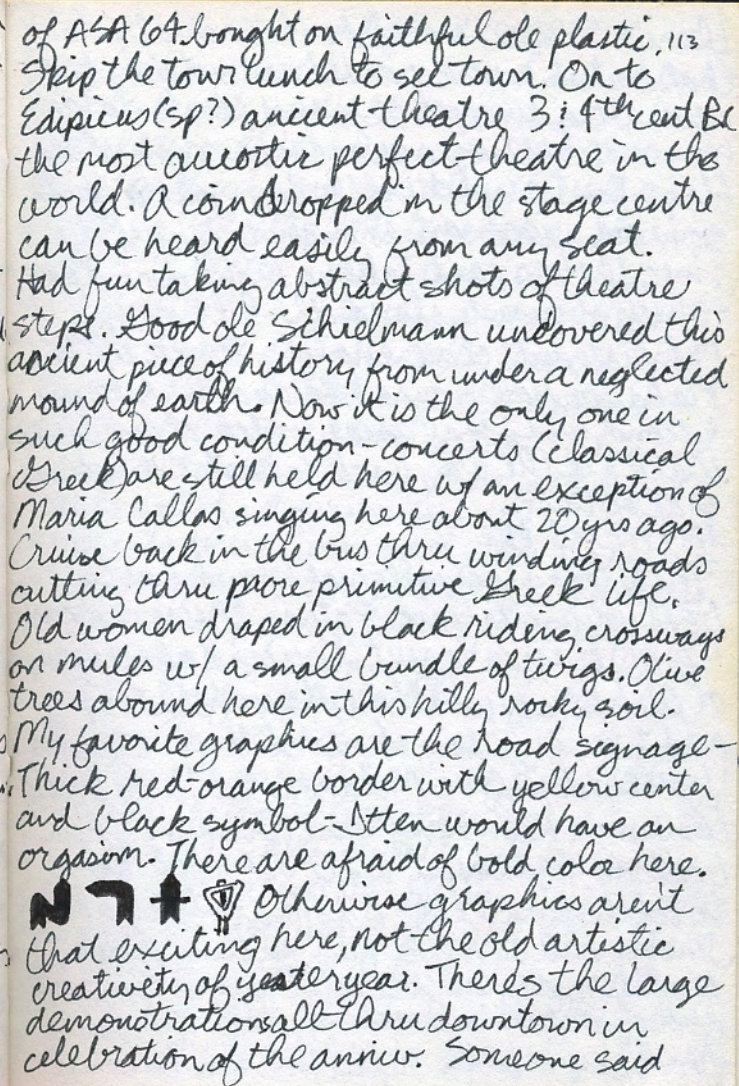 of ASA 64 bought on faithful ole plastic. 113
Skip the tour lunch to see town. On to
Edipicus (sp?) ancient theatre 3 & 4th cent BC
the most aucostic perfect theatre in the
world. A coin dropped in the stage centre
can be heard easily from any seat.
Had fun taking abstract shots of theatre
steps. Good ole Schielmann uncovered this
ancient piece of history from under a neglected
mound of earth. Now it is the only one in
such good condition - concerts (classical
Greek) are still held here w/ an exception of
Maria Callas singing here about 20 yrs ago.
Cruise back in the bus thru winding roads
cutting thru more primitive Greek life.
Old women draped in black riding crossways
on mules w/ a small bundle of twigs. Olive
trees abound here in this hilly rocky soil.
My favorite graphics are the road signage -
Thick red-orange border with yellow center
and black symbol - Itten would have an
orgasim. There are afraid of bold color here.
Otherwise graphics aren't
that exciting here, not the old artistic
creativety of yesteryear. There's the large
demonstrations all thru downtown in
celebration of the anniv. Someone said